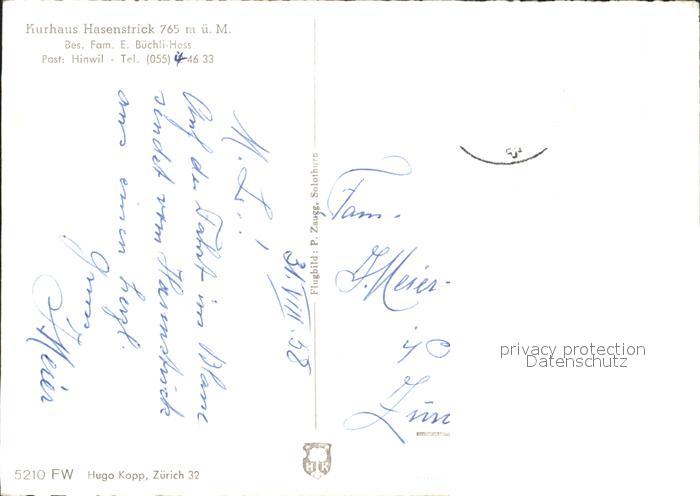 Kurhaus Hasenstrick 765 m ü. M.
Bes. Fam. E. Büchli-Hess
Post: Hinwil - Tel. (055) 4 46 33
31. VIII. 58
M. L.!
Auf der Fahrt ins Blaue
sendet vom Hasenstrick
aus einen herzl.
Gruss
Meier
Flugbild: P. Zaugg, Solothurn
Fam.
J. Meier-
Zür
privacy protection
Datenschutz
HK
5210 FW Hugo Kopp, Zürich 32